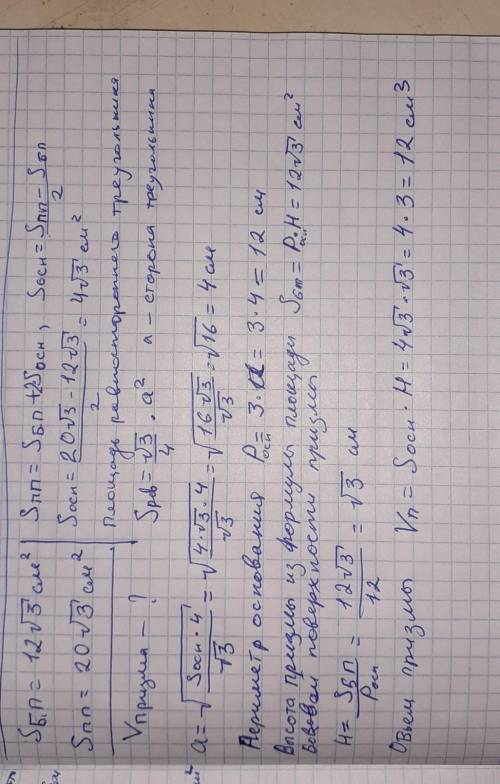 Sбп = 12√3 см² | Sпп = Sбп + 2Sосн, Sосн = (Sпп − Sбп)/2
Sпп = 20√3 см² | Sосн = (20√3 − 12√3)/2 = 4√3 см²
Vпризма − ? | Площадь равностороннего треугольника
Sрав = √3/4 · a² a − сторона треугольника
a = √(Sосн · 4/√3) = √(4·√3·4/√3) = √(16√3/√3) = √16 = 4 см
Периметр основания Pосн = 3·a = 3·4 = 12 см
Высота призмы из формулы площади
боковой поверхности призмы Sбп = Pосн·H = 12√3 см²
H = Sбп/Pосн = 12√3/12 = √3 см
Объем призмы Vп = Sосн · H = 4√3·√3 = 4·3 = 12 см3